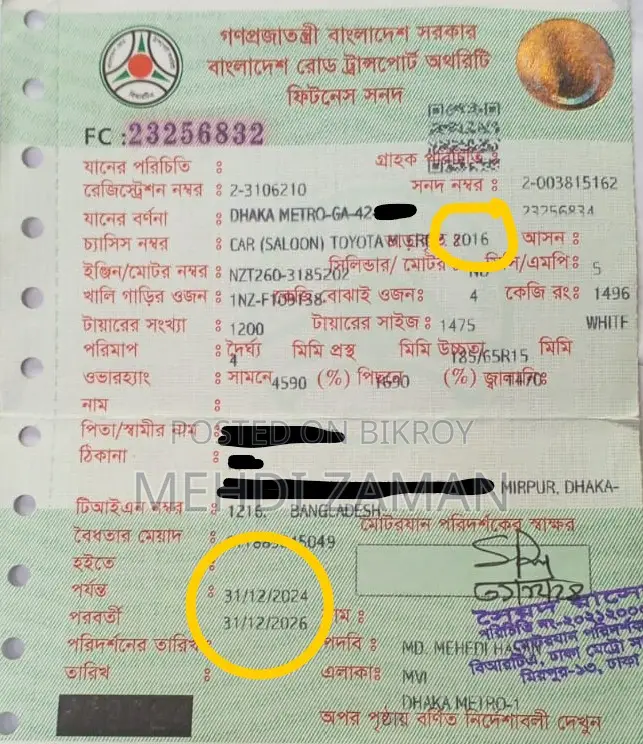 গণপ্রজাতন্ত্রী বাংলাদেশ সরকার
বাংলাদেশ রোড ট্রান্সপোর্ট অথরিটি
ফিটনেস সনদ
FC :23256832
যানের পরিচিতি : গ্রাহক পরিচিতি :
রেজিস্ট্রেশন নম্বর : 2-3106210 সনদ নম্বর : 2-003815162
যানের বর্ণনা : DHAKA METRO-GA-42- 23256834
চ্যাসিস নম্বর : CAR (SALOON) TOYOTA 2016 আসন :
ইঞ্জিন/মোটর নম্বর : NZT260-3185202 সিলিন্ডার/ মোটর সিসি/এমপি: 5
খালি গাড়ির ওজন : বোঝাই ওজন: 4 কেজি রং: 1496
টায়ারের সংখ্যা : 1200 টায়ারের সাইজ : 1475 WHITE
পরিমাপ : দৈর্ঘ্য 4 মিমি প্রস্থ মিমি উচ্চতা 185/65R15 মিমি
ওভারহ্যাং : সামনে 4590 (%) পিছনে 1690 (%) 1470
নাম :
পিতা/স্বামীর নাম :
POSTED ON BIKROY
ঠিকানা :
MEHDI ZAMAN
MIRPUR, DHAKA-
টিআইএন নম্বর : 1216. BANGLADESH
মোটরযান পরিদর্শকের স্বাক্ষর
বৈধতার মেয়াদ : 5049
হইতে :
পর্যন্ত : 31/12/2024
পরবর্তী 31/12/2026 নাম :
পরিদর্শনের তারিখ পদবি : MD. MEHEDI HASAN
তারিখ : এলাকা: MVI
DHAKA METRO-1
অপর পৃষ্ঠায় বর্ণিত নির্দেশাবলী দেখুন